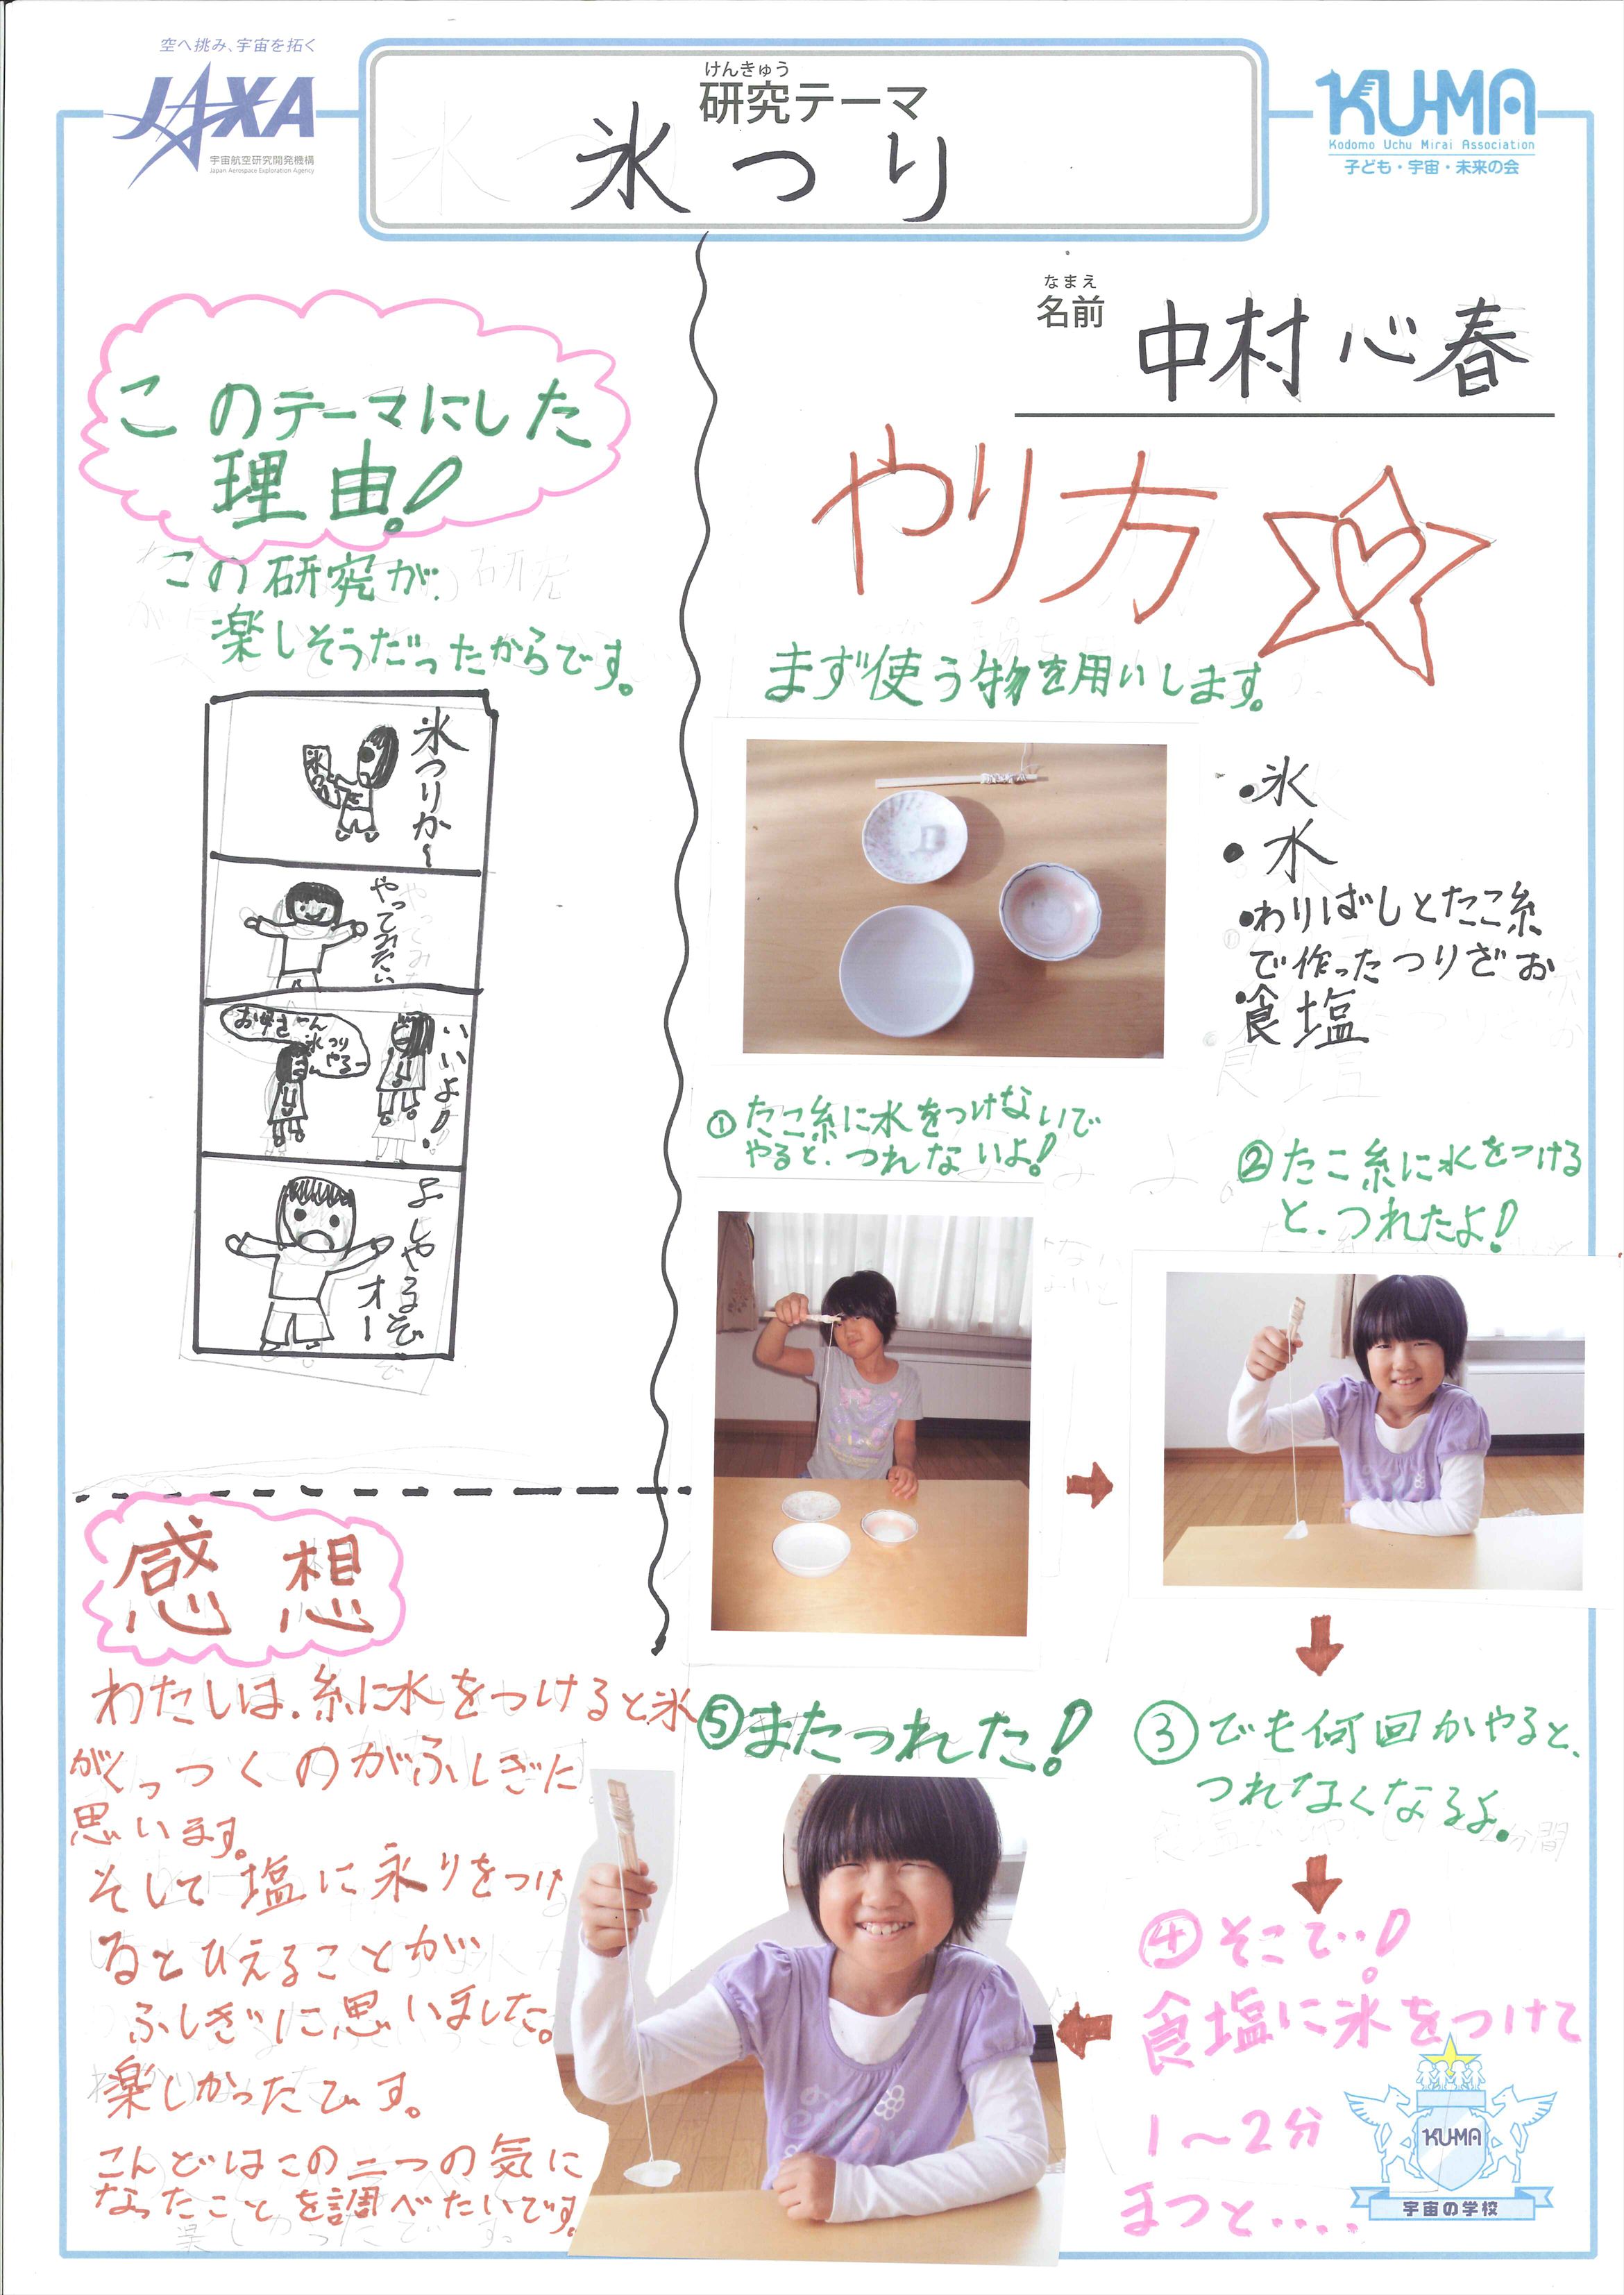 空へ挑み、宇宙を拓く
JAXA
宇宙航空研究開発機構
Japan Aerospace Exploration Agency
けんきゅう
研究テーマ
氷つり
KUMA
Kodomo Uchu Mirai Association
子ども・宇宙・未来の会
なまえ
名前
中村心春
このテーマにした
理由!
この研究が、
楽しそうだったからです。
氷つりか〜
氷つり
やってみたい
お母さーん
氷つり
やるー
いいよ!
よしやるぞ
オー
感想
わたしは、糸に水をつけると氷
がくっつくのがふしぎだ
思います。
そして塩に氷りをつけ
るとひえることが
ふしぎに思いました。
楽しかったです。
こんどはこの二つの気に
なったことを調べたいです。
やり方
まず使う物を用いします。
・氷
・水
・わりばしとたこ糸
で作ったつりざお
・食塩
①たこ糸に水をつけないで
やると、つれないよ!
②たこ糸に水をつける
と、つれたよ!
③でも何回かやると、
つれなくなるよ。
④そこで‥!
食塩に氷をつけて
1〜2分
まつと‥‥
⑤またつれた!
KUMA
宇宙の学校